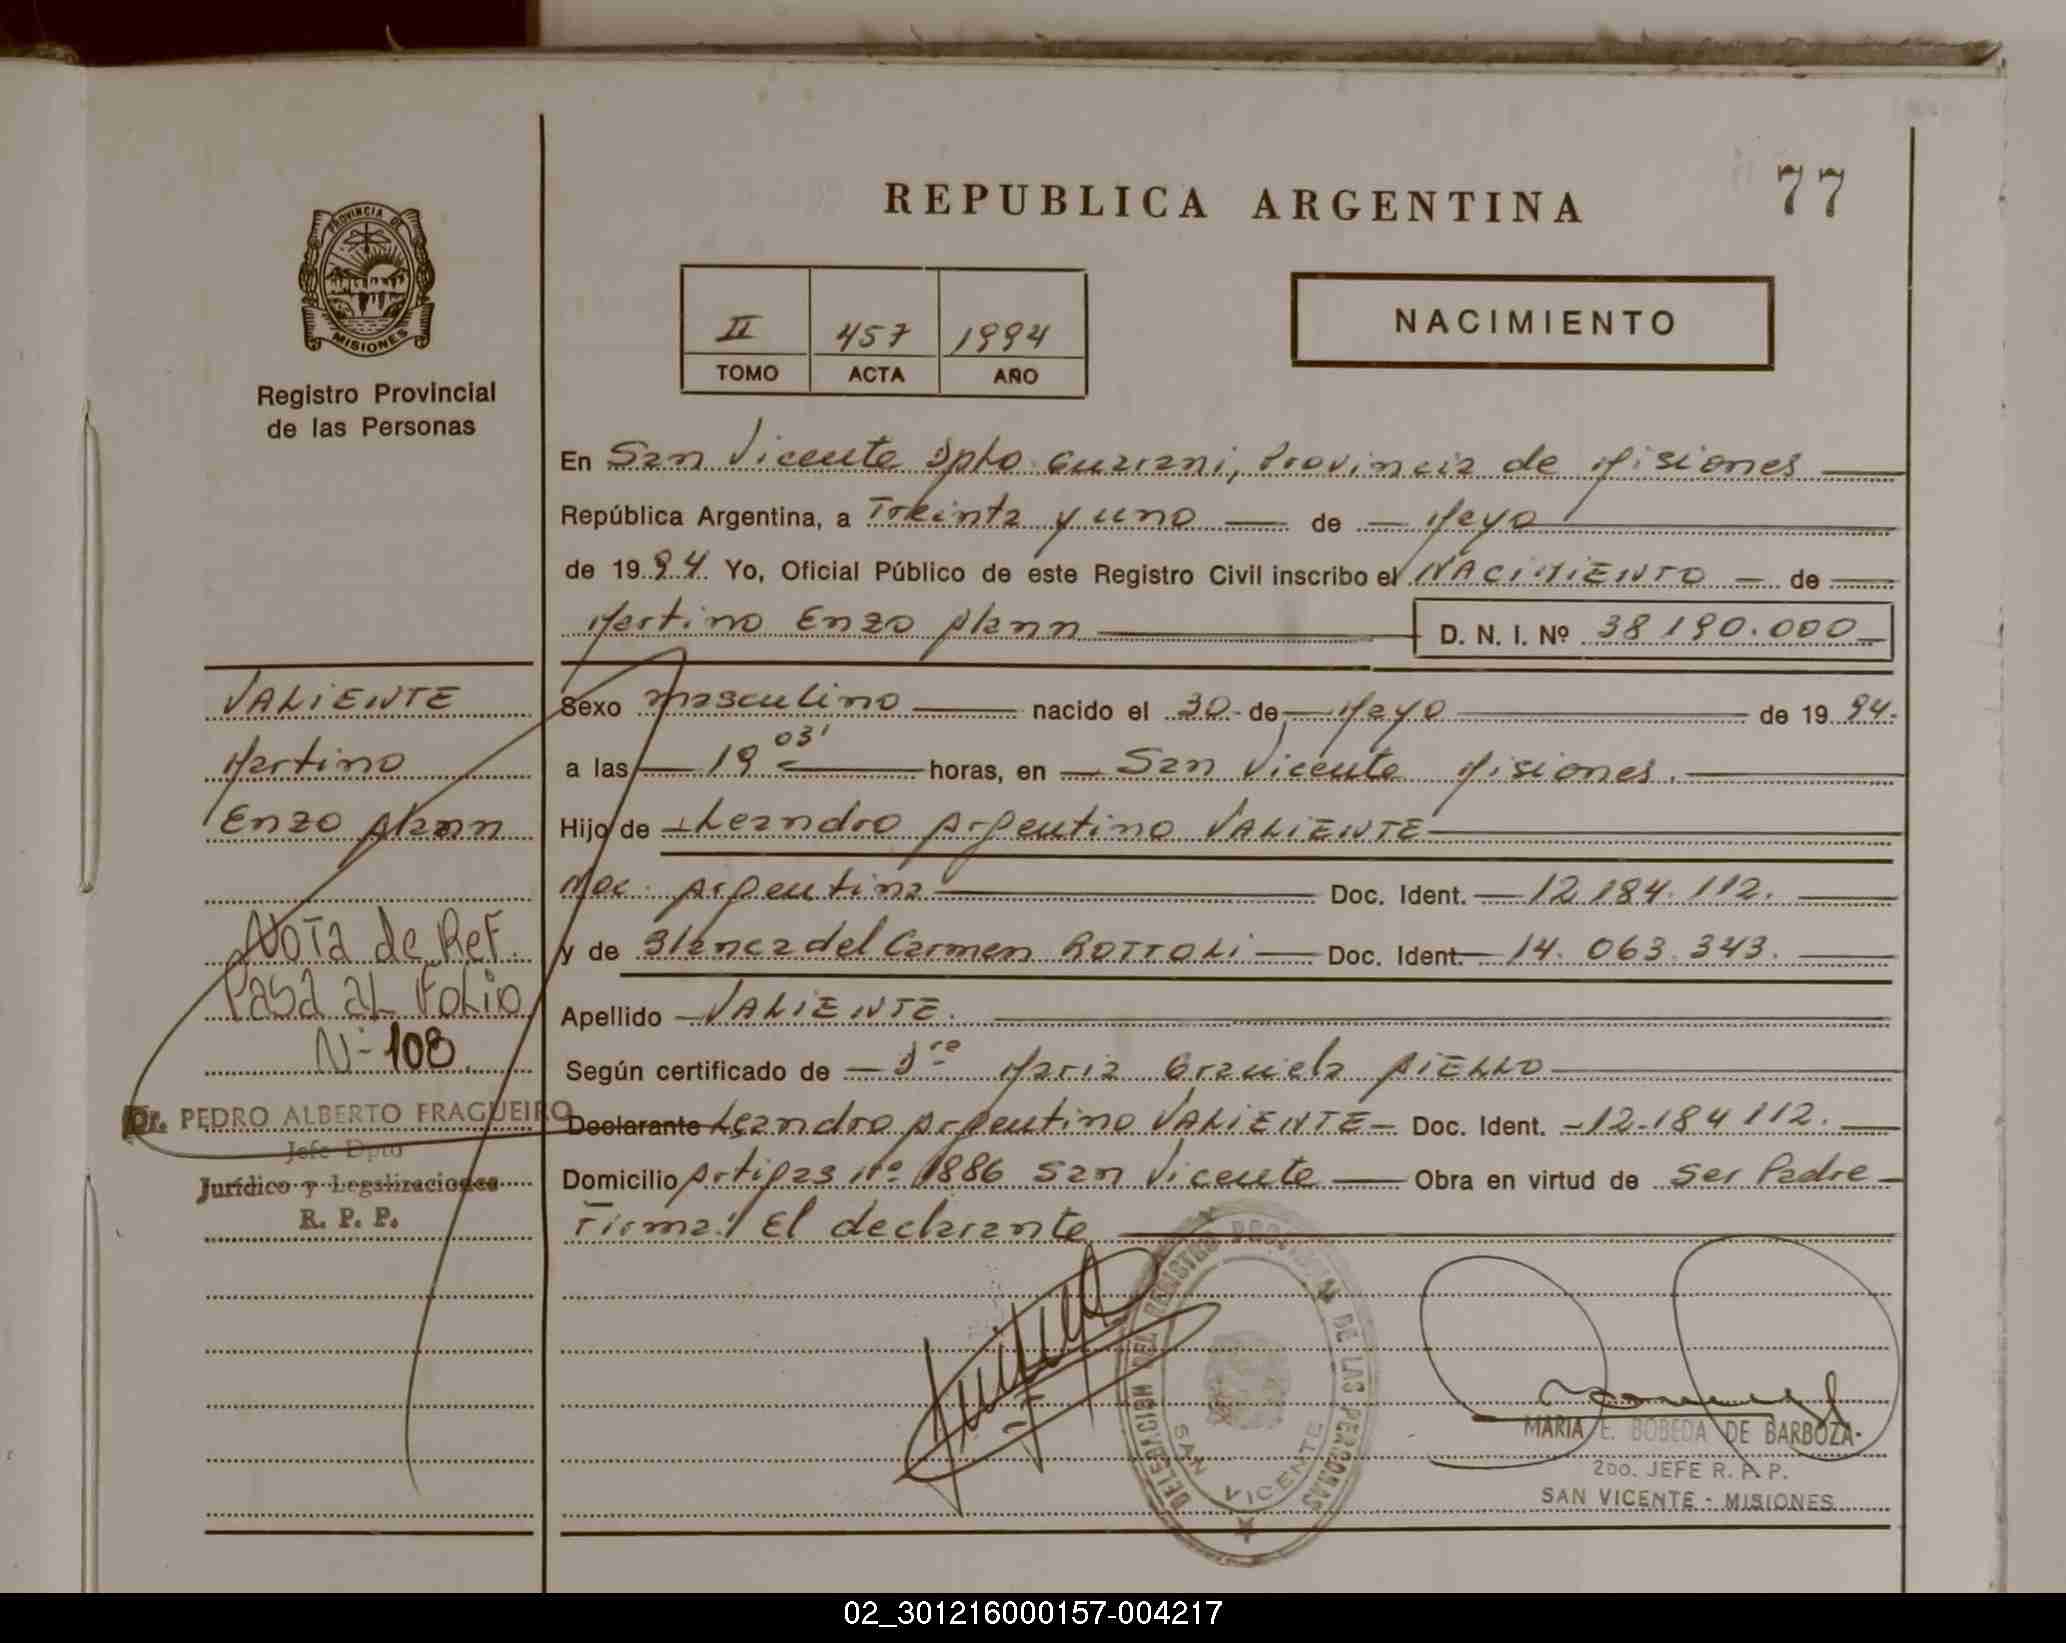 REPUBLICA ARGENTINA
77
PROVINCIA DE
MISIONES
Registro Provincial
de las Personas
II 457 1994
TOMO ACTA AÑO
NACIMIENTO
En San Vicente Dpto Guarani, Provincia de Misiones
República Argentina, a Treinta y uno de Mayo
de 1994 Yo, Oficial Público de este Registro Civil inscribo el NACIMIENTO de
Martino Enzo Alann D. N. I. Nº 38190.000
VALIENTE
Martino
Enzo Alann
Nota de Ref.
Pasa al Folio
Nº 108
Dr. PEDRO ALBERTO FRAGUEIRO
Jefe Dpto
Jurídico y Legalizaciones
R. P. P.
Sexo masculino nacido el 30 de Mayo de 1994.
a las 19 03' horas, en San Vicente Misiones.
Hijo de Leandro Argentino VALIENTE
Nac. Argentina Doc. Ident. 12.184.112.
y de Blanca del Carmen ROTTOLI Doc. Ident. 14.063.343.
Apellido VALIENTE.
Según certificado de Dra Maria Graciela AIELLO
Declarante Leandro Argentino VALIENTE Doc. Ident. 12.184112.
Domicilio Artigas Nº 1886 San Vicente Obra en virtud de Ser Padre
Firma: El declarante
DELEGACION DEL REGISTRO PROVINCIAL DE LAS PERSONAS
SAN VICENTE
MARIA E. BOBEDA DE BARBOZA
2DO. JEFE R. P. P.
SAN VICENTE - MISIONES
02_301216000157-004217